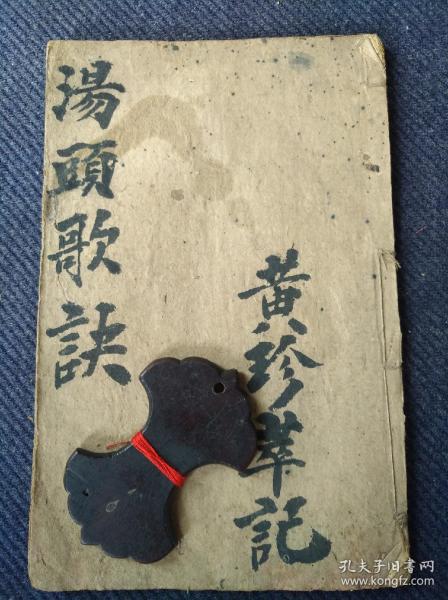 湯頭歌訣
黃珍萃記
孔夫子旧书网
www.kongfz.com